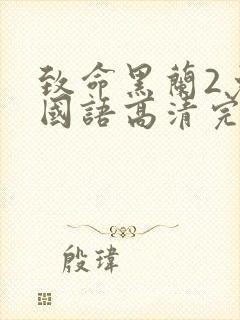 致命黑蘭2
國語高清完
殷瑋